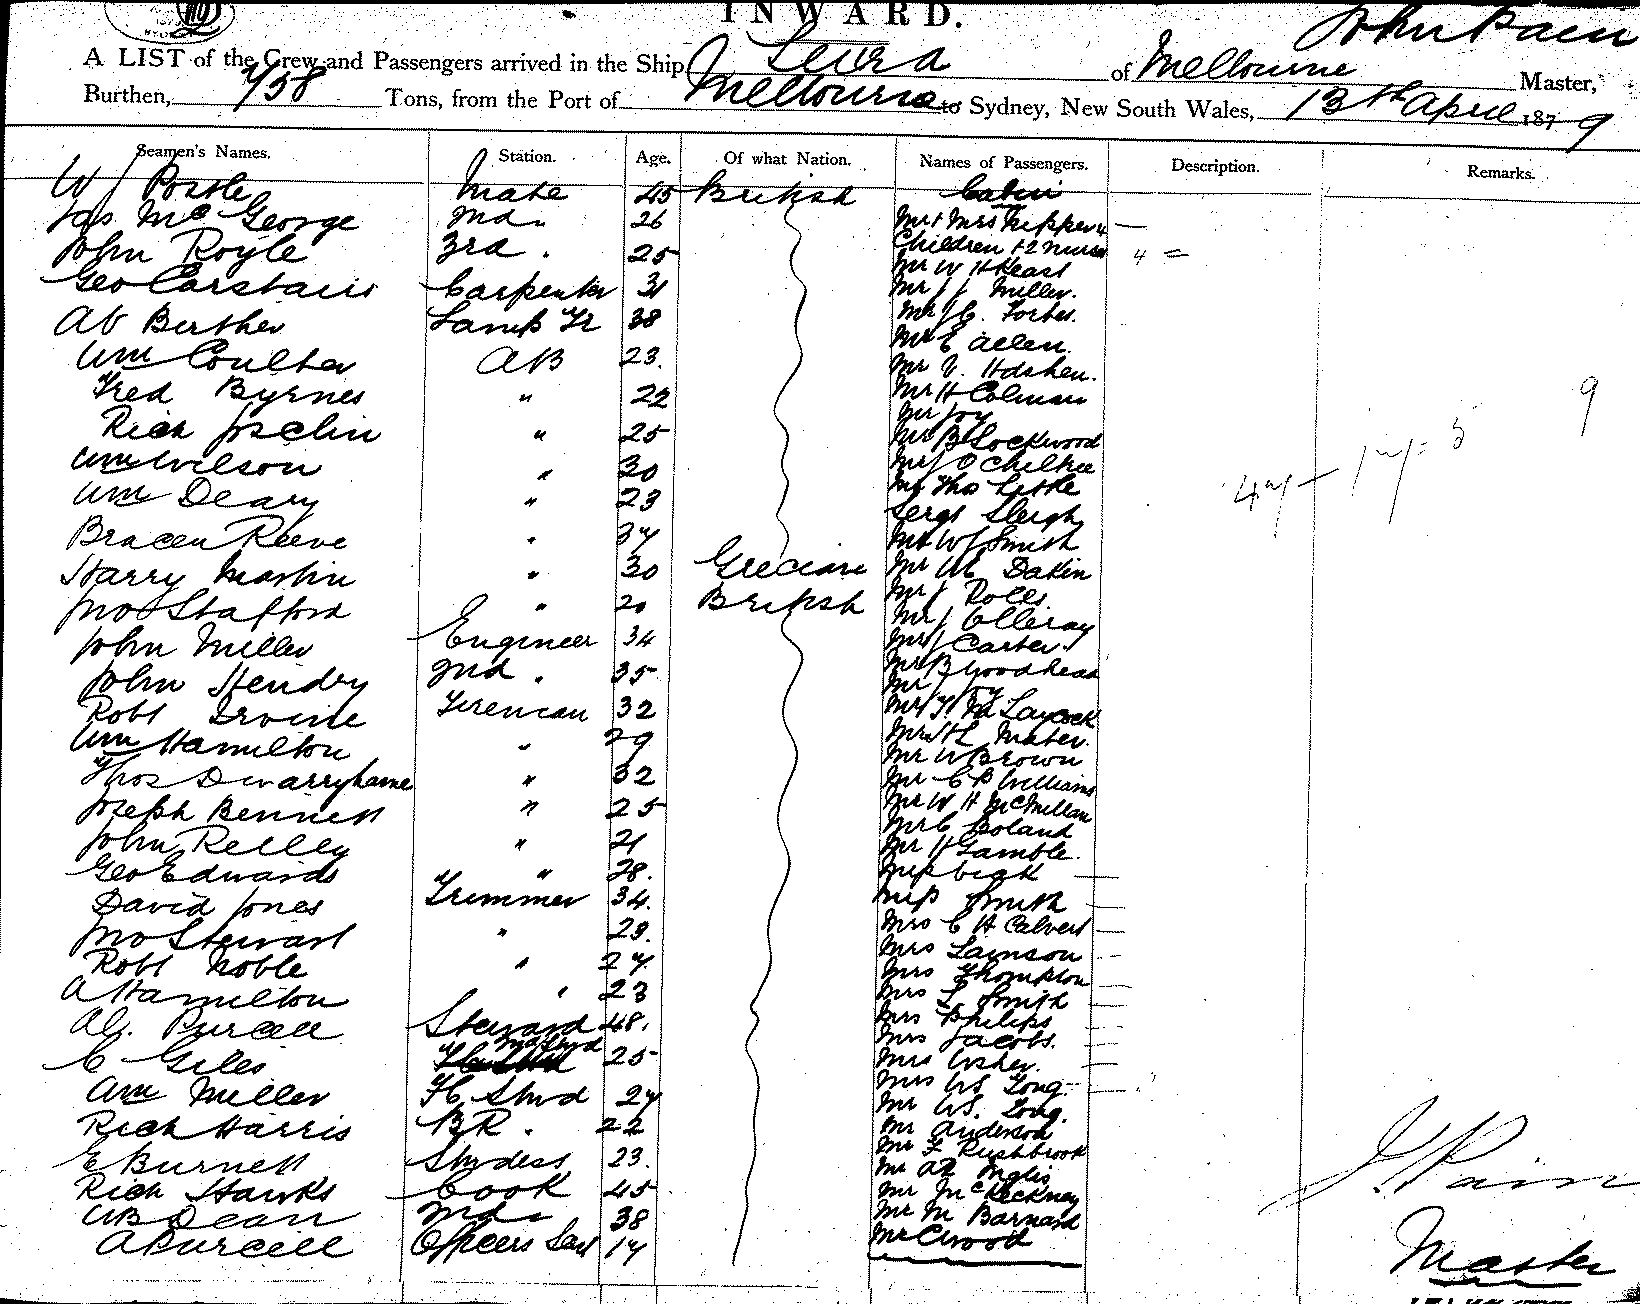 INWARD.
John Pain
A LIST of the Crew and Passengers arrived in the Ship of Melbourne Master,
Burthen, Tons, from the Port of Melbourne to Sydney, New South Wales, 13th April 1879
Seamen's Names. Station. Age. Of what Nation. Names of Passengers. Description. Remarks.
W Postle Mate 45 British Cabin
Jas McGeorge 2nd " 26 Mr & Mrs Kipper 4
John Royle 3rd " 25 Children + 2 nurses
Geo Carstairs Carpenter 31 Mr W H Keast
Mr J Miller.
Berther Lamp Tr 38 Mr J C. Forbes.
Wm Coulter AB 23. Mr E Allen.
Mr V.
Fred Byrnes " 22 Mr H Colman
Mr Joy
Rich Joselin " 25 Mr B Lockwood
Wm Wilson " 30 Mr J Ochiltree
Wm Deary " 23 Mr Thos Little
Sergt Sleigh
Reeve " Mr W J Smith
Harry Martin " 30 Grecian Mr M Dakin
Jno Stafford " 20 British Mr J Rolls
Mr J Elleray
John Miller Engineer 34 Mr J Carter.
John Hendry 2nd " 35 Mr B Woodhead
Mr Joy
Robt Irvine Fireman 32 Mr Laycock
Wm Hamilton " 29 Mr H L Mater.
Mr W Brown
Thos " 32 Mr C B Williams
Joseph Bennett " 25 Mr W H McMillan
Mr C Boland
John Relley " 21 Mr H Gamble.
Geo Edwards " 28. Miss
David Jones Trimmer 34. Miss Smith
Mrs C H Calvert
Jno Stewart " 29. Mrs Lamson
Robt Noble " Mrs Thompton
A Hamilton " 23 Mrs L Smith
Mrs Philips
Purcell Steward 48. Mrs Jacobs.
C Giles 2nd Stwd 25 Mrs Usher.
Mrs WS Long.
Wm Miller FC Stwd Mr WS. Long.
Rich Harris BR " 22 Mr Anderson
Mr F Rushbrook
E Burnett Stwdess 23. Mr Inglis
Rich Hawks Cook 45 Mr McKeckney
WB Dean 2nd " 38 Mr M Barnard
A Purcell Officers Sevt Mr C Wood
J. Pain
Master